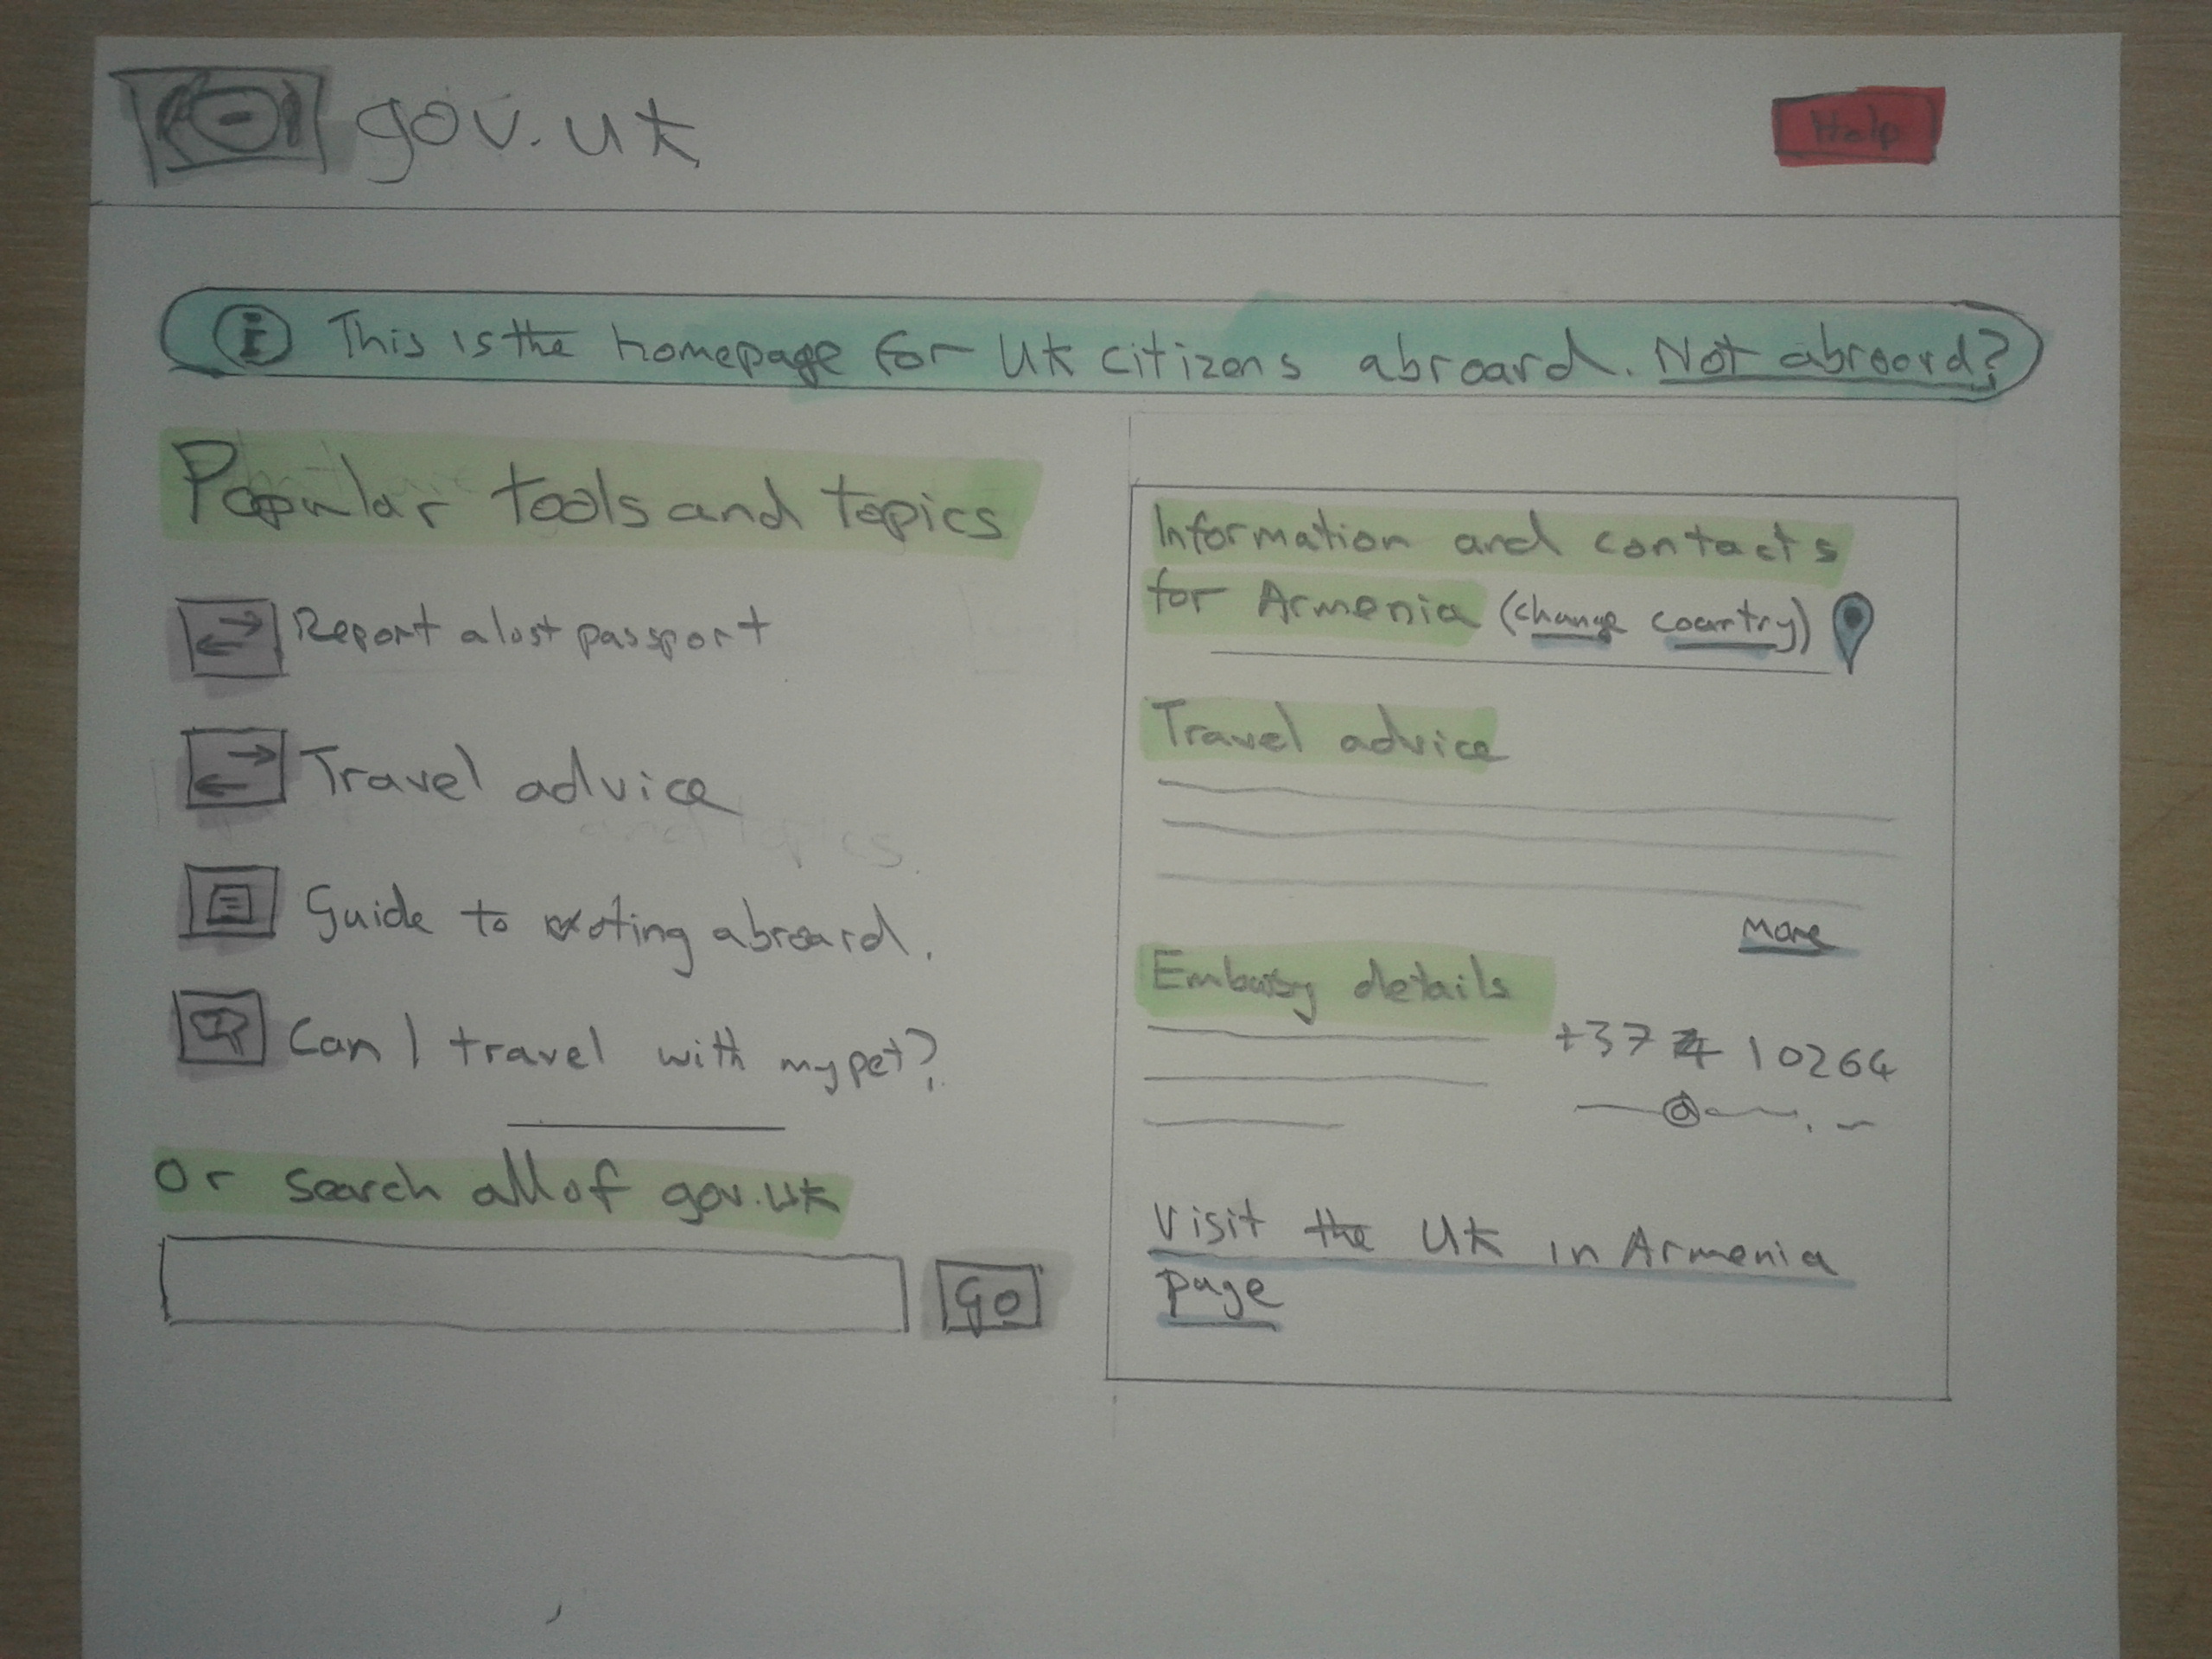 gov.uk
Help
i This is the homepage for UK citizens abroard. Not abroord?
Popular tools and topics
Report a lost passport
Travel advice
Guide to voting abroard.
Can I travel with my pet?
Or search all of gov.uk
Go
Information and contacts
for Armenia (change country)
Travel advice
More
Embassy details
+374 10264
@
Visit the UK in Armenia
page